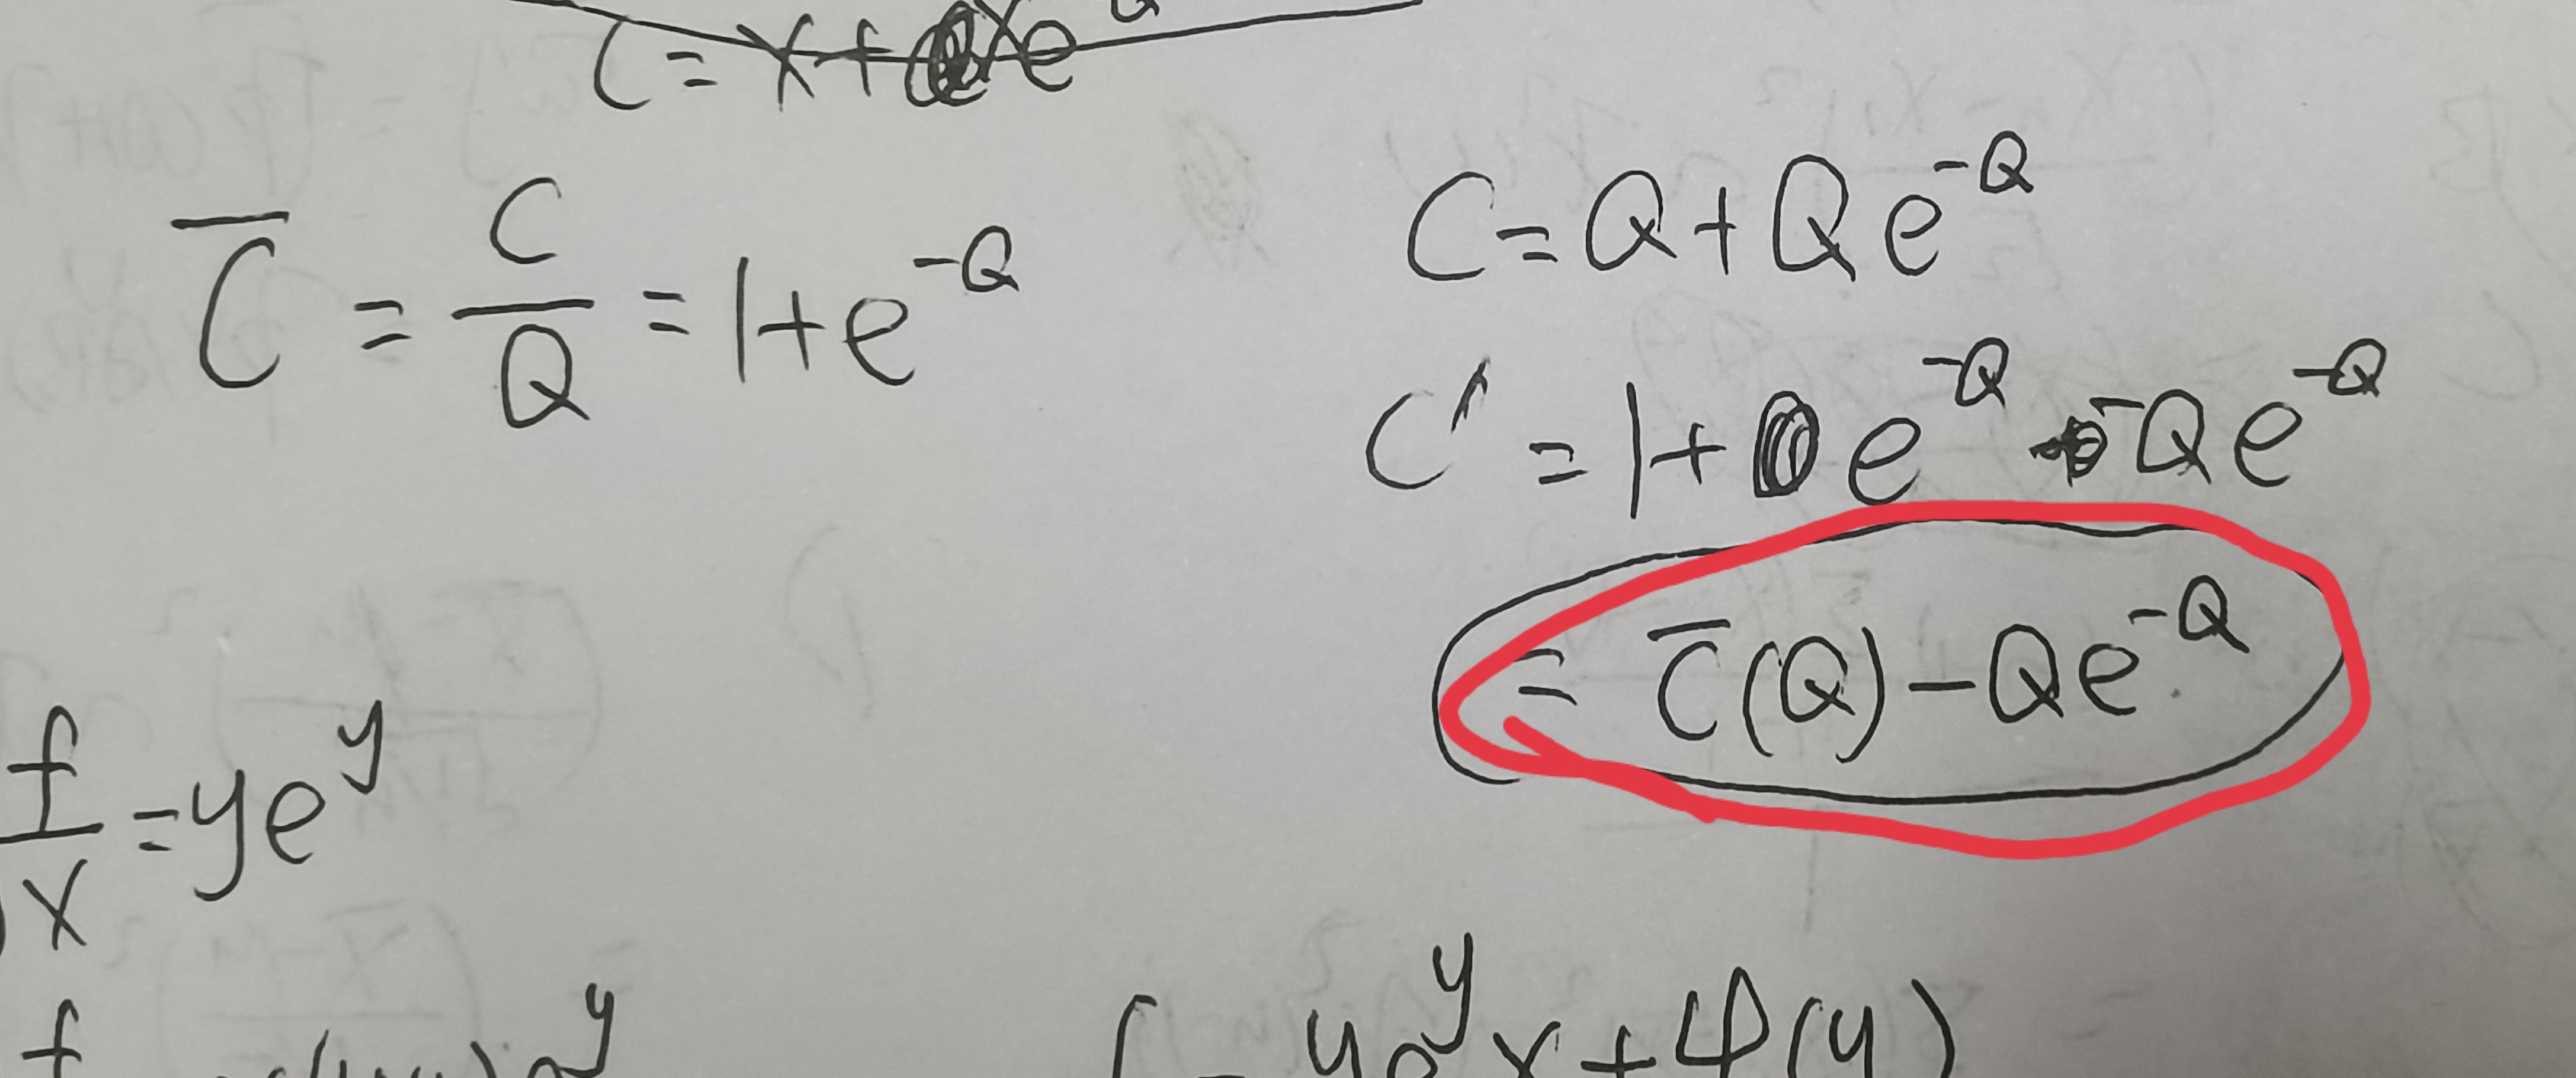 C = x + xe
C̄ = C/Q = 1+e^{-Q}
C = Q + Qe^{-Q}
C' = 1 + e^{-Q} - Qe^{-Q}
= C̄(Q) - Qe^{-Q}
f/x = ye^y
f y
ye^y x + φ(y)